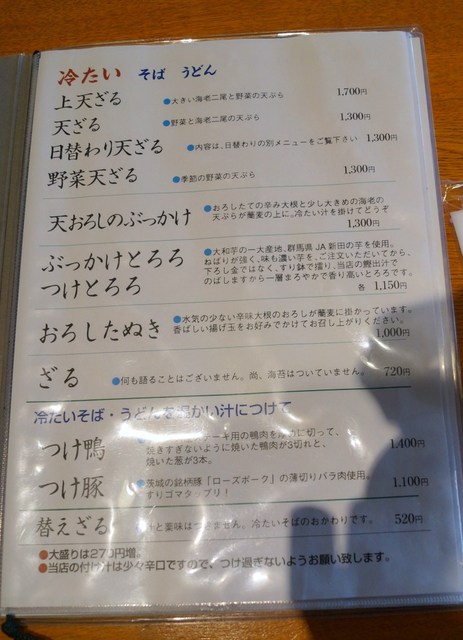 冷たい そば うどん
上天ざる ●大きい海老二尾と野菜の天ぷら 1,700円
天ざる ●野菜と海老二尾の天ぷら 1,300円
日替わり天ざる ●内容は、日替わりの別メニューをご覧下さい 1,300円
野菜天ざる ●季節の野菜の天ぷら 1,300円
天おろしのぶっかけ ●おろしたての辛み大根と少し大きめの海老の
天ぷらが蕎麦の上に、冷たい汁を掛けてどうぞ
1,300円
ぶっかけとろろ ●大和芋の一大産地、群馬県JA新田の芋を使用。
ねばりが強く、味も濃い芋を、ご注文いただいてから、
つけとろろ 下ろし金ではなく、すり鉢で擂り、当店の鰹出汁で
のばしますから一層まろやかで香り高いとろろです。
各 1,150円
おろしたぬき ●水気の少ない辛味大根のおろしが蕎麦に掛かっています。
香ばしい揚げ玉をお好みでかけてお召し上がりください。
1,000円
ざる ●何も語ることはございません。尚、海苔はついていません。 720円
冷たいそば・うどんを温かい汁につけて
つけ鴨 ーキ用の鴨肉を厚めに切って、
焼きすぎないように焼いた鴨肉が3切れと、 1,400円
焼いた葱が3本。
つけ豚 ●茨城の銘柄豚「ローズポーク」の薄切りバラ肉使用。
すりゴマタップリ! 1,100円
替えざる 汁と薬味はつきません。冷たいそばのおかわりです。 520円
●大盛りは270円増。
●当店の付け汁は少々辛口ですので、つけ過ぎないようお願い致します。